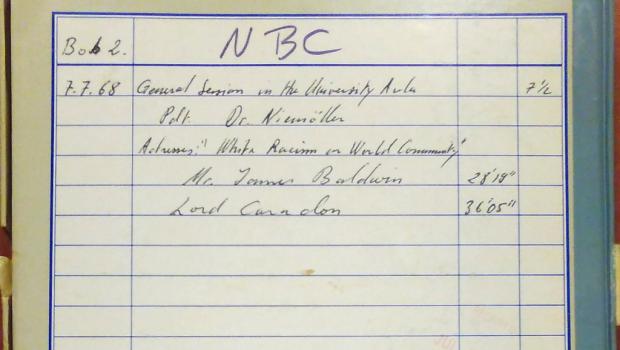 Bob 2. NBC
7.7.68 General Session in the University Aula 7 1/2
Pdt. Dr. Niemöller
Adresses: "White Racism or World Community"
Mr. James Baldwin 28'19"
Lord Caradon 36'05"